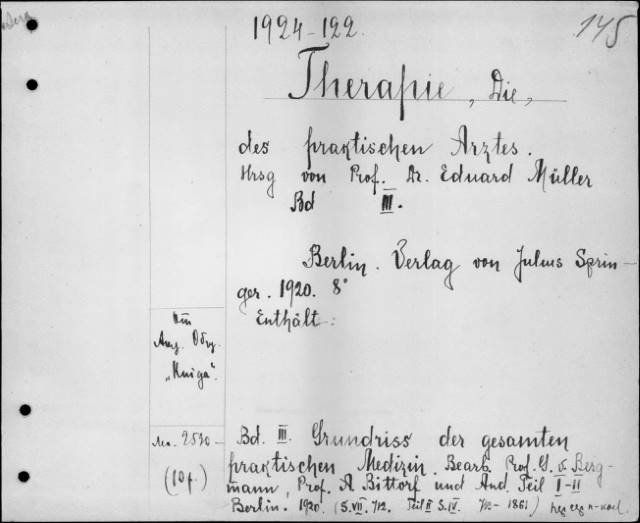 1924-122.
145
Therapie, Die,
des praktischen Arztes.
Hrsg von Prof. Dr. Eduard Müller
Bd III.
Berlin. Verlag von Julius Sprin-
ger. 1920. 8°
Enthält:
"Kniga".
2530-
(10 f.)
Bd. III. Grundriss der gesamten
praktischen Medizin. Bearb. Prof. G. v. Berg-
mann, Prof. A. Bittorf und And. Teil I-II
Berlin. 1920. (S. VII. 712. Teil II S. IV. 712-1861)